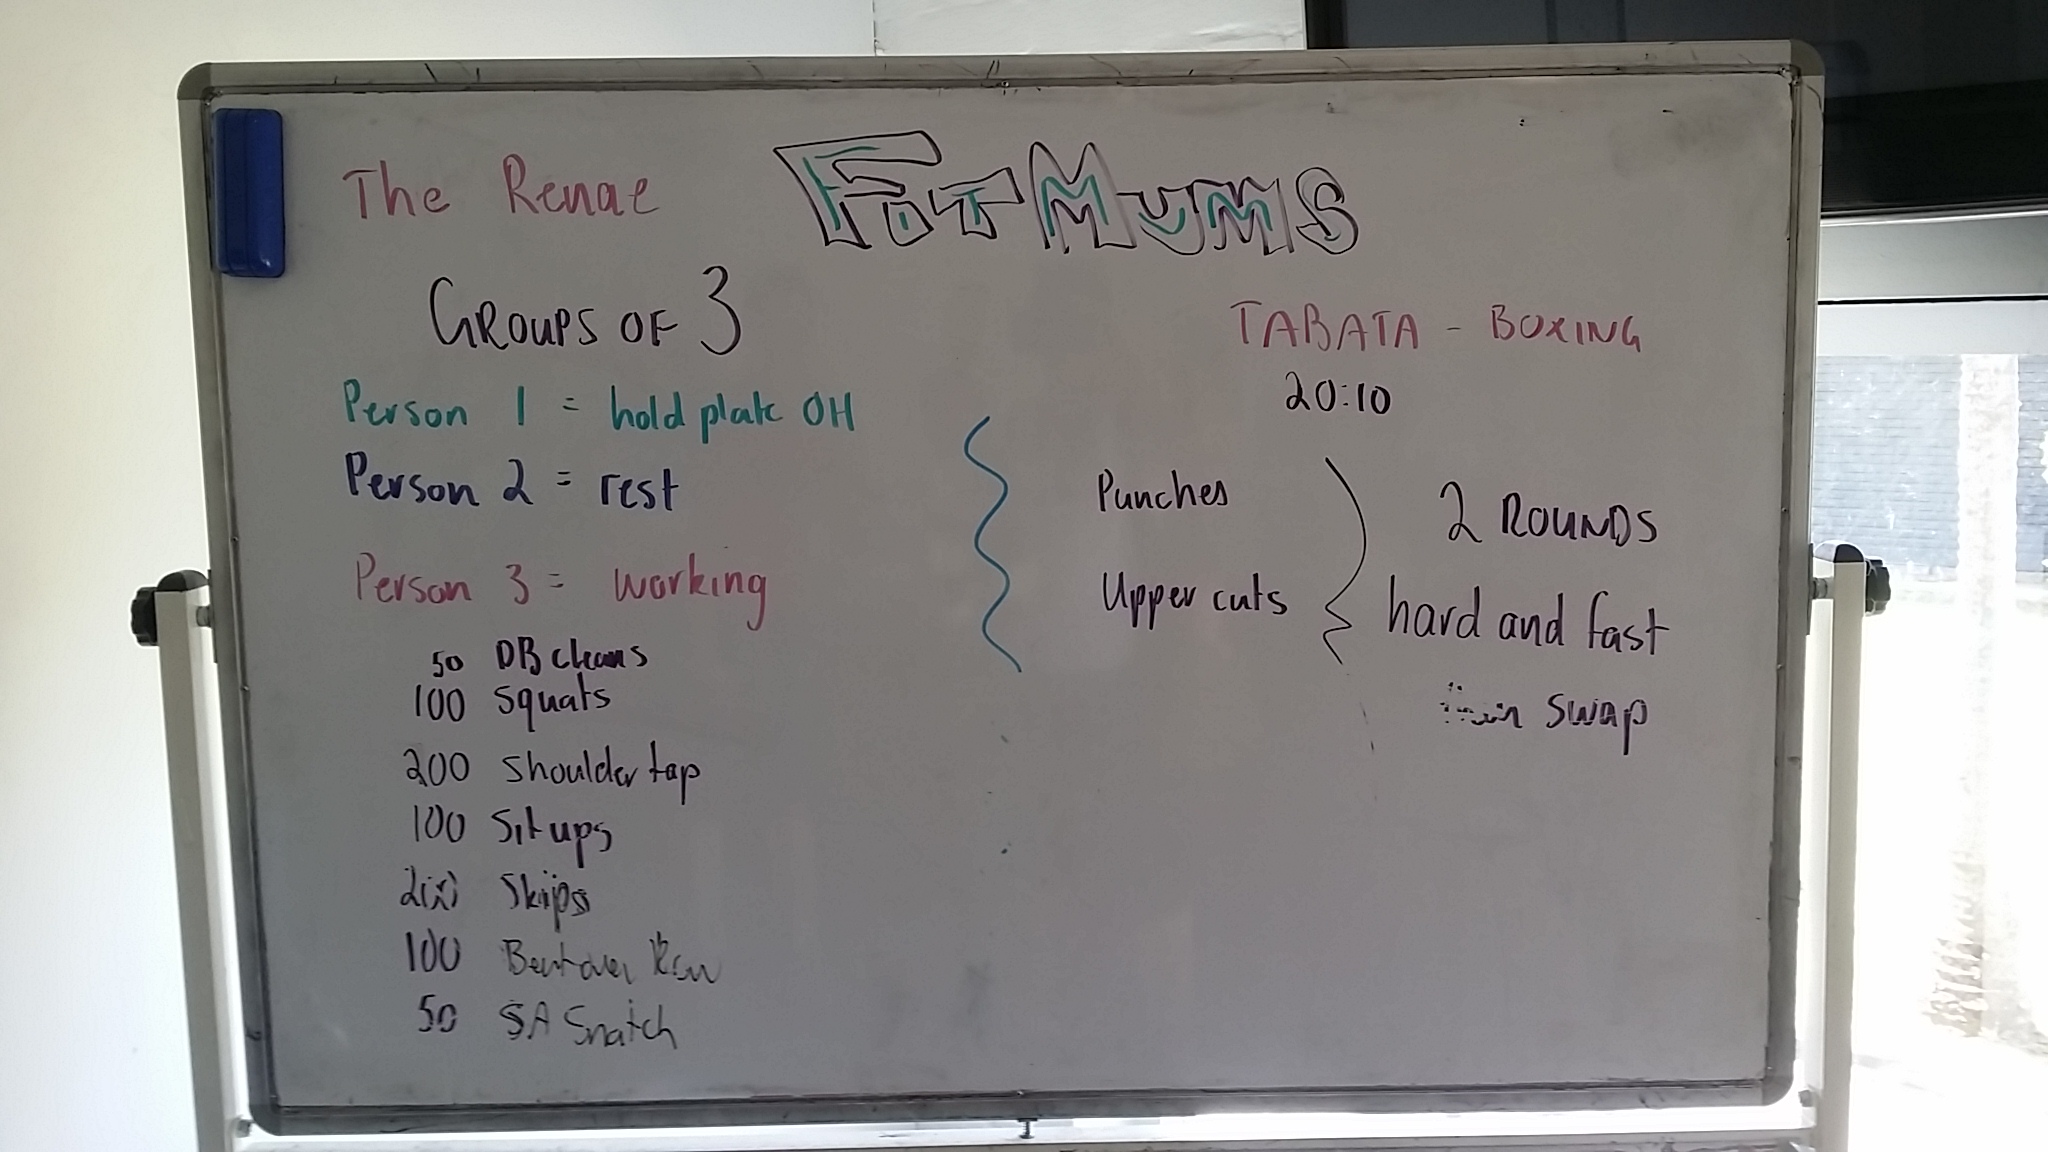 The Renae
FIT MUMS
GROUPS OF 3
Person 1 = hold plate OH
Person 2 = rest
Person 3 = working
50 DB cleans
100 Squats
200 Shoulder tap
100 Sit ups
200 Skips
100 Bentover Row
50 SA Snatch
TABATA - BOXING
20:10
Punches
Upper cuts
2 ROUNDS
hard and fast
swap